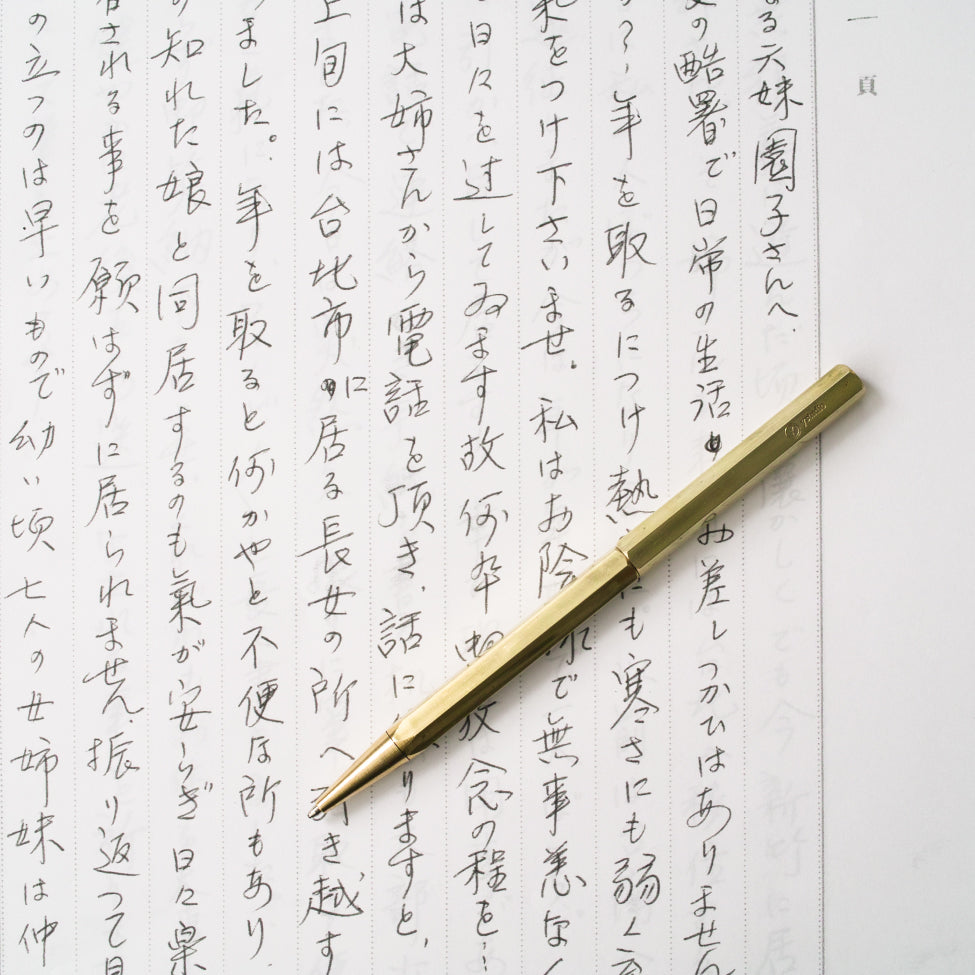 一頁
る六妹園子さんへ.
の酷署で日常の生活お差しつかひはありません
年を取るにつけ熱にも寒さにも弱く
をつけ下さいませ。私はお陰で無事恙なく
日々を过してゐます故何卒放念の程を…
は大姉さんから電話を頂き、話にりますと,
上旬には台北市に居る長女の所へ引き越す
ました。年を取ると何かやと不便な所もあり、
の知れた娘と同居するのも氣が安らぎ日々楽
される事を願はずに居られません.振り返って見
の立つのは早いもので幼い頃七人の女姉妹は仲